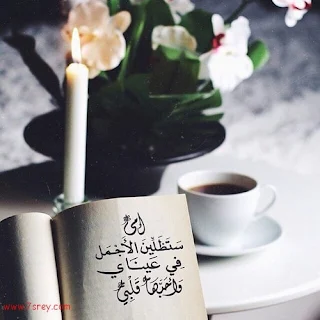 امي
سَتَظَلِّينَ الأَجْمَل
فِي عَيْنَاي
قَلْبِي
www.7srey.com